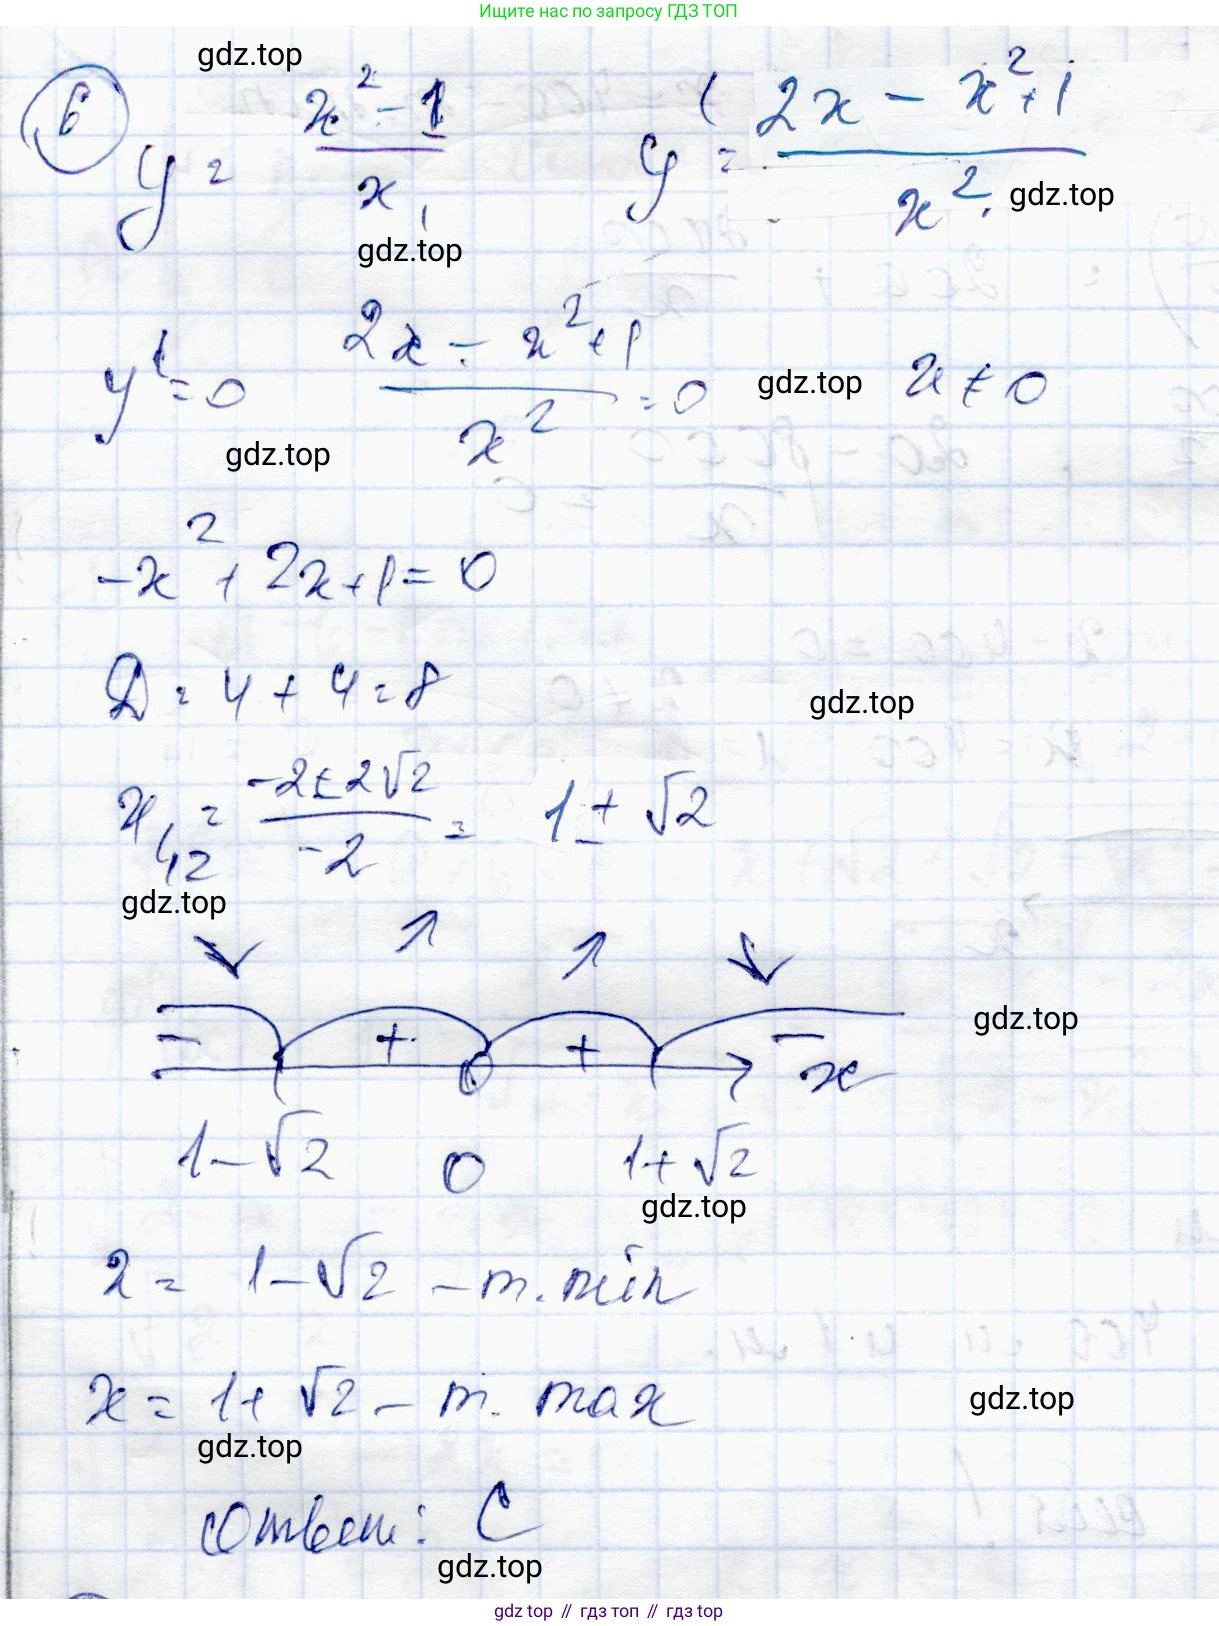 Ищите нас по запросу ГДЗ ТОП
gdz.top
6
y = (x² - 1)/x, y' = (2x - x² + 1)/x².
gdz.top
gdz.top
y' = 0 (2x - x² + 1)/x² = 0 gdz.top x ≠ 0
gdz.top
-x² + 2x + 1 = 0
D = 4 + 4 = 8
gdz.top
x₁,₂ = (-2 ± 2√2)/-2 = 1 ± √2
gdz.top
↘ ↗ ↗ ↘
gdz.top
- + + - x
1-√2 0 1+√2
gdz.top
x = 1 - √2 - т. min
x = 1 + √2 - т. max
gdz.top
gdz.top
Ответ: C
gdz.top
gdz top // гдз топ // гдз top